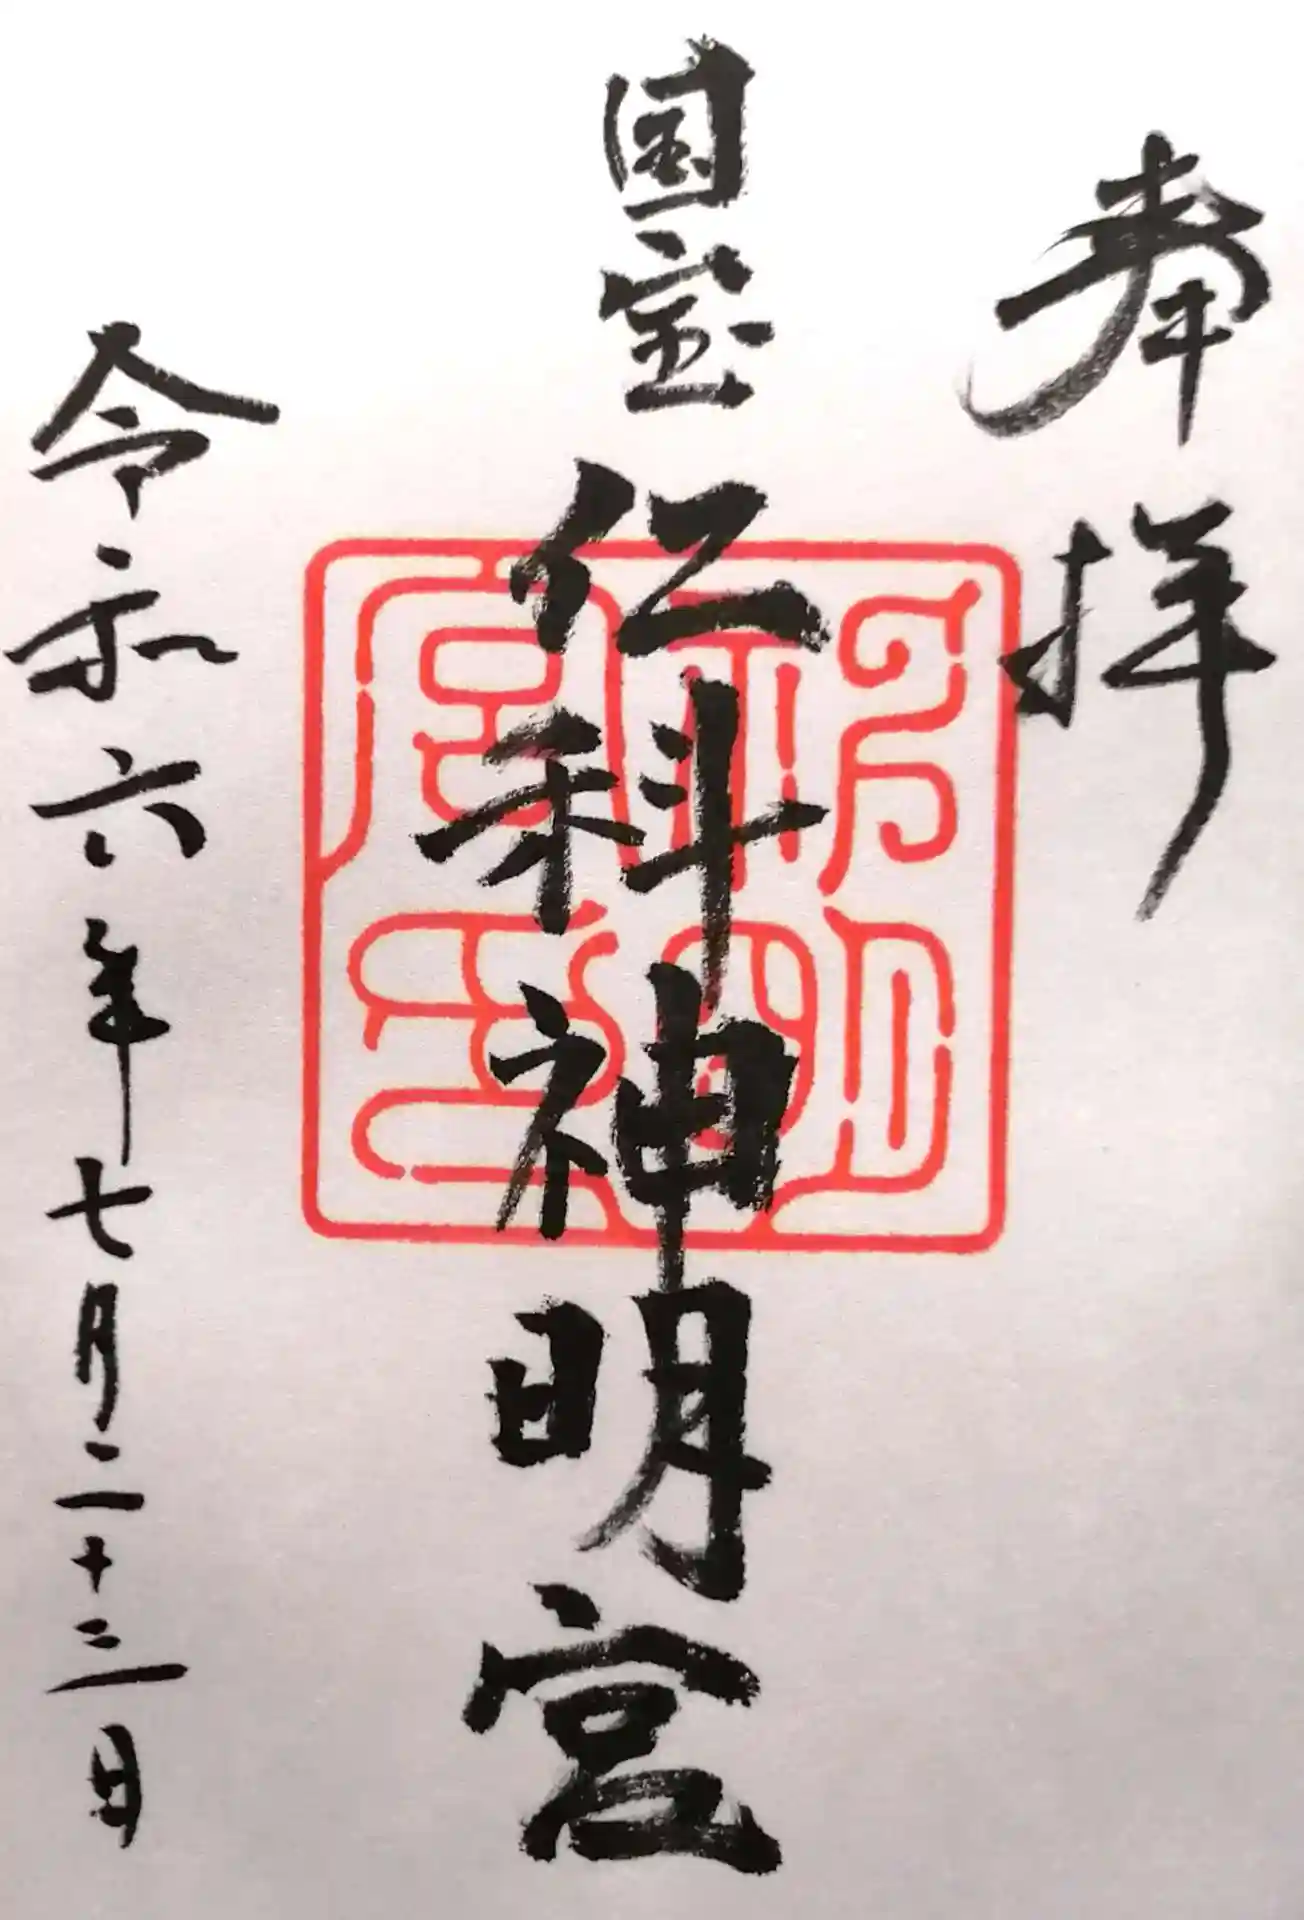 奉拝
国宝 仁科神明宮
令和六年七月二十三日